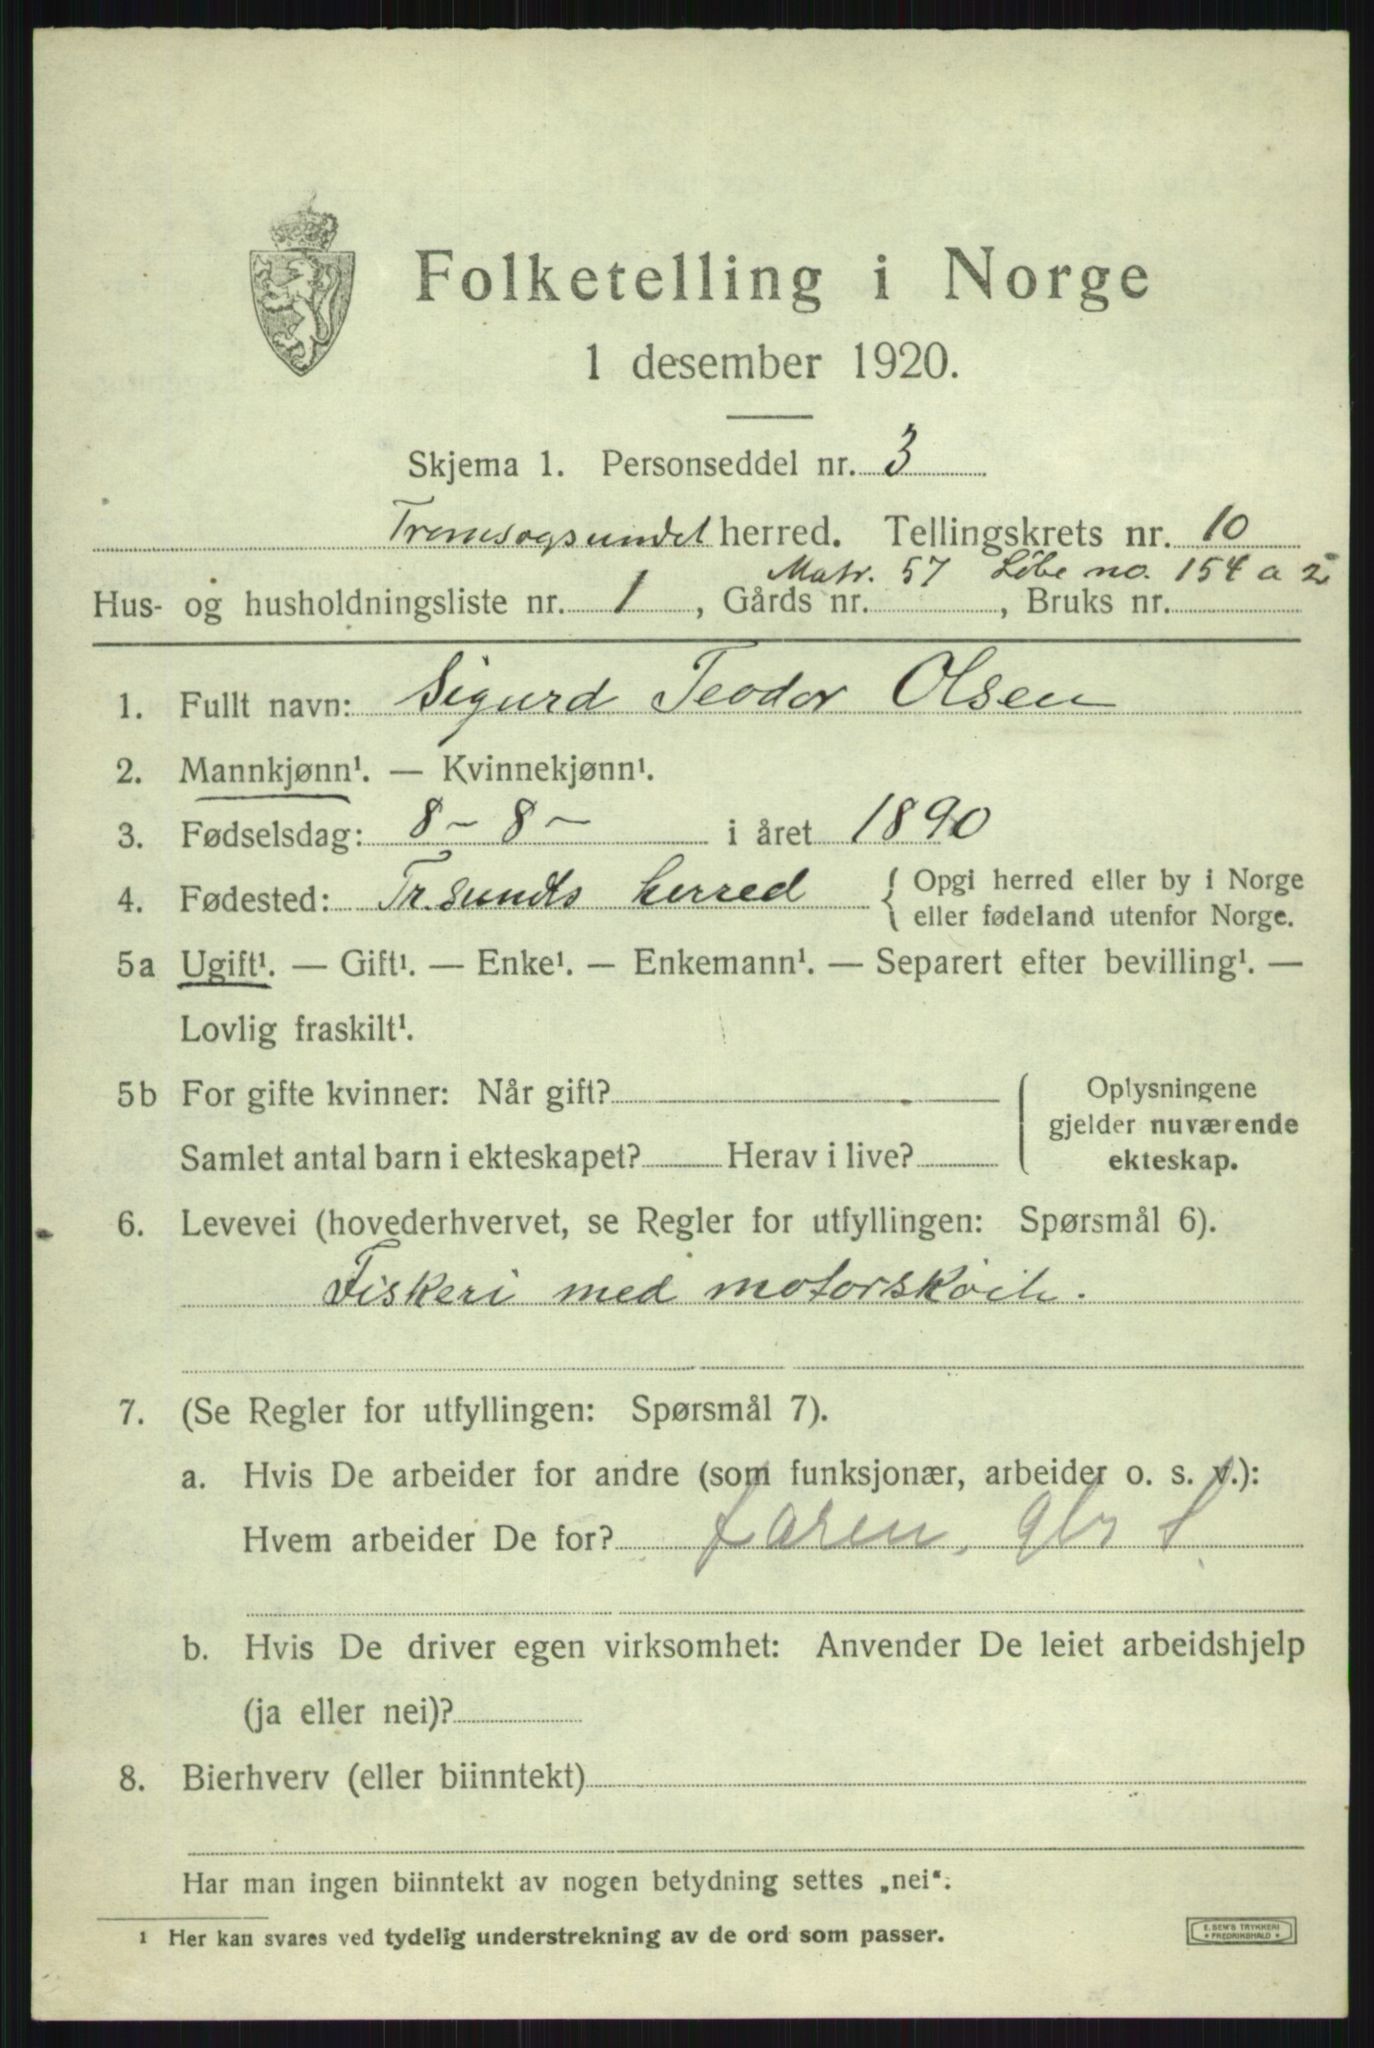 Folketelling i Norge
1 desember 1920.
Skjema 1. Personseddel nr. 3
Tromsøysundet herred. Tellingskrets nr. 10
Matr. 57 Løbe no. 154 a 2
Hus- og husholdningsliste nr. 1, Gårds nr. , Bruks nr.
1. Fullt navn: Sigurd Teodor Olsen
2. Mannkjønn¹. — Kvinnekjønn¹.
3. Fødselsdag: 8 - 8 - i året 1890
4. Fødested: Tr.sundts herred { Opgi herred eller by i Norge
eller fødeland utenfor Norge.
5a Ugift¹. — Gift¹. — Enke¹. — Enkemann¹. — Separert efter bevilling¹. —
Lovlig fraskilt¹.
5b For gifte kvinner: Når gift?
Samlet antal barn i ekteskapet? Herav i live?
Oplysningene
gjelder nuværende
ekteskap.
6. Levevei (hovederhvervet, se Regler for utfyllingen: Spørsmål 6).
Fiskeri med motorskøite.
7. (Se Regler for utfyllingen: Spørsmål 7).
a. Hvis De arbeider for andre (som funksjonær, arbeider o. s. v.):
Hvem arbeider De for?
b. Hvis De driver egen virksomhet: Anvender De leiet arbeidshjelp
(ja eller nei)?
8. Bierhverv (eller biinntekt)
Har man ingen biinntekt av nogen betydning settes „nei“.
¹ Her kan svares ved tydelig understrekning av de ord som passer.
E. SEM'S TRYKKERI
* FREDRIKSHALD *